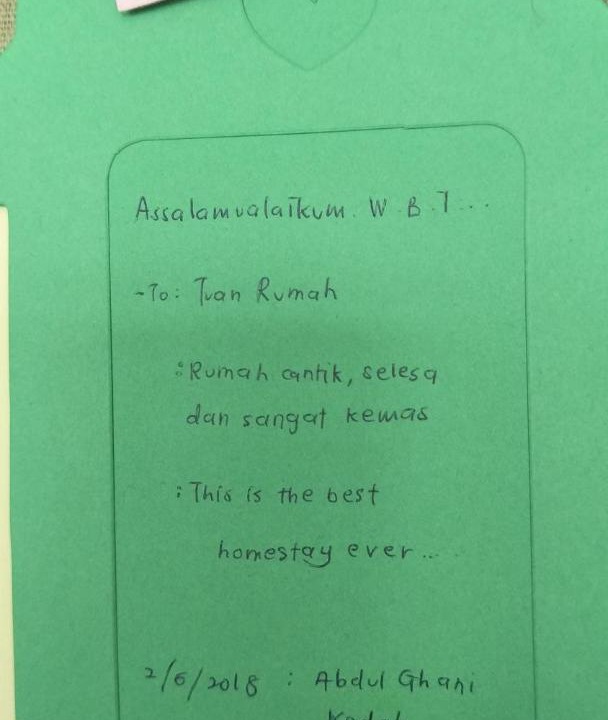 Assalamualaikum. W. B. T...
-To: Tuan Rumah
: Rumah cantik, selesa
dan sangat kemas
: This is the best
homestay ever...
2/6/2018 : Abdul Ghani